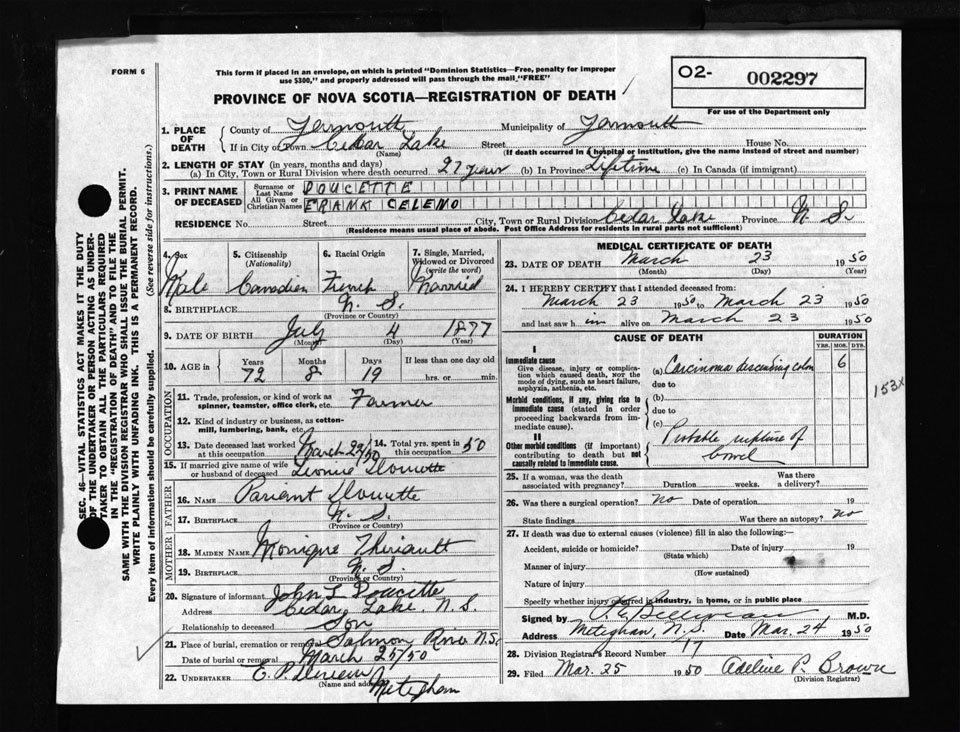 FORM 6
This form if placed in an envelope, on which is printed "Dominion Statistics—Free, penalty for improper
use $300," and properly addressed will pass through the mail "FREE"
O2- 002297
For use of the Department only
PROVINCE OF NOVA SCOTIA—REGISTRATION OF DEATH
1. PLACE OF DEATH
County of Yarmouth Municipality of Yarmouth
If in City or Town Cedar Lake Street House No.
(Name) (If death occurred in a hospital or institution, give the name instead of street and number)
2. LENGTH OF STAY (in years, months and days)
(a) In City, Town or Rural Division where death occurred 27 years (b) In Province Lifetime (c) In Canada (if immigrant)
3. PRINT NAME OF DECEASED
Surname or Last Name DOUCETTE
All Given or Christian Names FRANK CELENO
RESIDENCE No. Street City, Town or Rural Division Cedar Lake Province N. S.
(Residence means usual place of abode. Post Office Address for residents in rural parts not sufficient)
4. Sex Male
5. Citizenship (Nationality) Canadian
6. Racial Origin French
7. Single, Married, Widowed or Divorced (write the word) Married
8. BIRTHPLACE N. S.
(Province or Country)
9. DATE OF BIRTH July 4 1877
(Month) (Day) (Year)
10. AGE in Years Months Days If less than one day old
72 8 19 hrs. or min.
OCCUPATION
11. Trade, profession, or kind of work as spinner, teamster, office clerk, etc. Farmer
12. Kind of industry or business, as cotton-mill, lumbering, bank, etc.
13. Date deceased last worked at this occupation March 22/50
14. Total yrs. spent in this occupation 50
15. If married give name of wife or husband of deceased Doucette
FATHER
16. NAME Doucette
17. BIRTHPLACE N. S.
(Province or Country)
MOTHER
18. MAIDEN NAME Monique Theriault
19. BIRTHPLACE N. S.
(Province or Country)
20. Signature of informant John L Doucette
Address Cedar Lake, N. S.
Relationship to deceased Son
21. Place of burial, cremation or removal Salmon River N.S.
Date of burial or removal March 25/50
22. UNDERTAKER E. P.
(Name and address) Meteghan
MEDICAL CERTIFICATE OF DEATH
23. DATE OF DEATH March 23 1950
(Month) (Day) (Year)
24. I HEREBY CERTIFY that I attended deceased from:
March 23 1950 to March 23 1950
and last saw h im alive on March 23 1950
CAUSE OF DEATH
DURATION
YRS. MOS. DYS.
I
Immediate cause
Give disease, injury or complication which caused death, NOT the mode of dying, such as heart failure, asphyxia, asthenia, etc.
(a) Carcinoma descending colon 6
due to
153X
Morbid conditions, if any, giving rise to immediate cause (stated in order proceeding backwards from immediate cause).
(b)
due to
(c)
II
Other morbid conditions (if important) contributing to death but not causally related to immediate cause.
Probable rupture of
bowel
25. If a woman, was the death associated with pregnancy? Duration weeks. Was there a delivery?
26. Was there a surgical operation? No Date of operation 19
State findings Was there an autopsy? No
27. If death was due to external causes (violence) fill in also the following:—
Accident, suicide or homicide? Date of injury 19
(State which)
Manner of injury
(How sustained)
Nature of injury
Specify whether injury occurred in industry, in home, or in public place
Signed by M.D.
Address Meteghan, N.S. Date Mar. 24 1950
28. Division Registrar's Record Number 17
29. Filed Mar. 25 1950 Adeline P. Brown
(Division Registrar)
SEC. 46—VITAL STATISTICS ACT MAKES IT THE DUTY
OF THE UNDERTAKER OR PERSON ACTING AS UNDER-
TAKER TO OBTAIN ALL THE PARTICULARS REQUIRED
IN THE "REGISTRATION OF DEATH" AND TO FILE THE
SAME WITH THE DIVISION REGISTRAR WHO SHALL ISSUE THE BURIAL PERMIT.
WRITE PLAINLY WITH UNFADING INK. THIS IS A PERMANENT RECORD.
Every item of information should be carefully supplied. (See reverse side for instructions.)